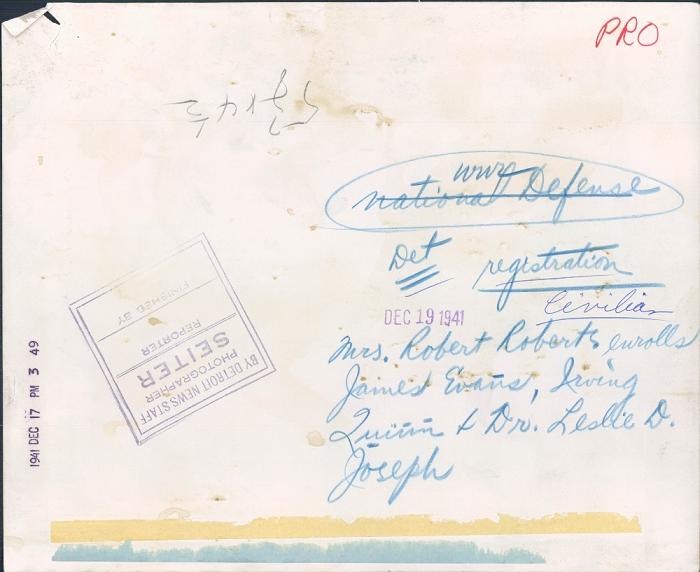 PRO
WW2
National Defense
Det
registration
Civilian
DEC 19 1941
Mrs. Robert Roberts enrolls
James Evans, Irving
Quinn & Dr. Leslie D.
Joseph
BY DETROIT NEWS STAFF
PHOTOGRAPHER
SEITER
REPORTER
FINISHED BY
1941 DEC 17 PM 3 49